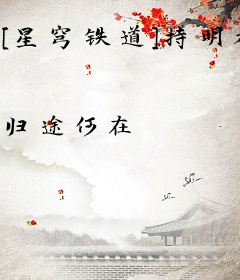 [星穹铁道]持明
归途何在